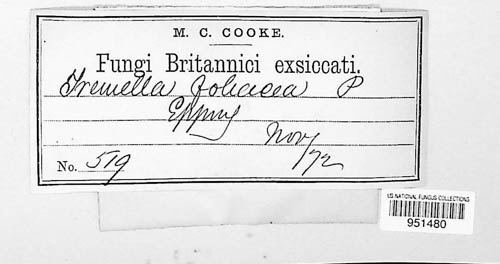 M. C. COOKE.
Fungi Britannici exsiccati.
Tremella foliacea P
Epping
Nov/72
No. 519
US NATIONAL FUNGUS COLLECTIONS
951480